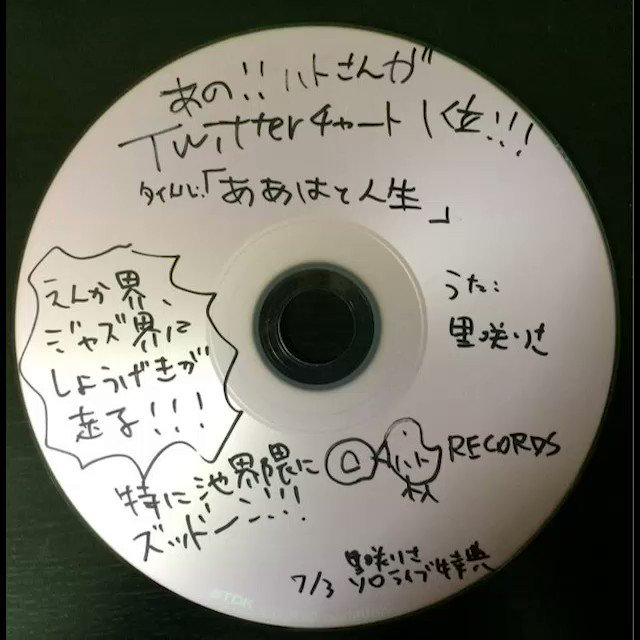 あの!!ハトさんが
Twitterチャート1位!!!
タイトル:「ああはと人生」
えんか界、
ジャズ界に
しょうげきが
走る!!!
うた:
里咲りさ
特に池界隈に
ズッドーン!!!
ハト RECORDS
7/3 里咲りさ
ソロライブ特典
TDK